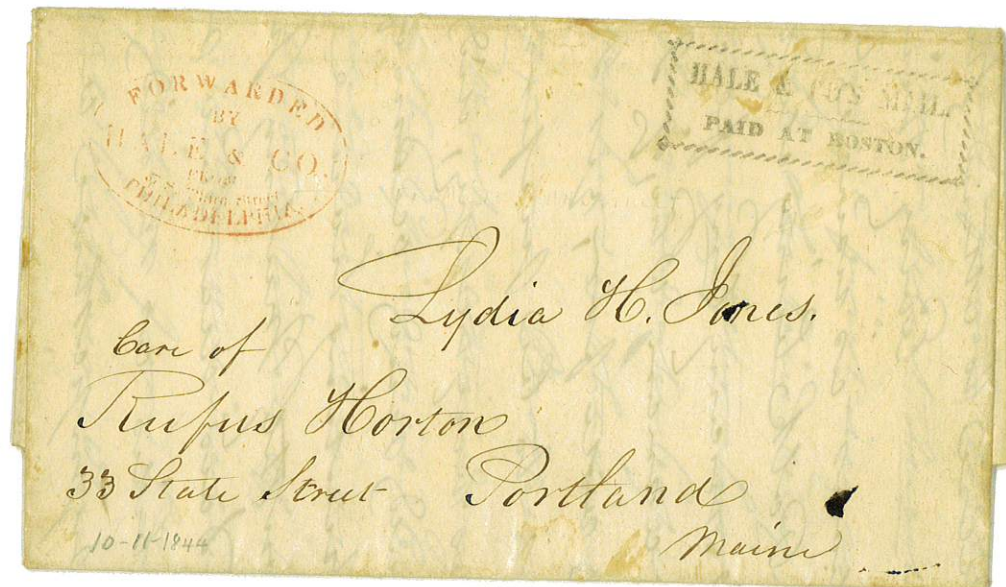 FORWARDED
BY
HALE & CO.
From
PHILADELPHIA.
HALE & CO'S MAIL.
PAID AT BOSTON.
Lydia H. Jones.
Care of
Rufus Horton
33 State Street Portland
Maine
10-11-1844